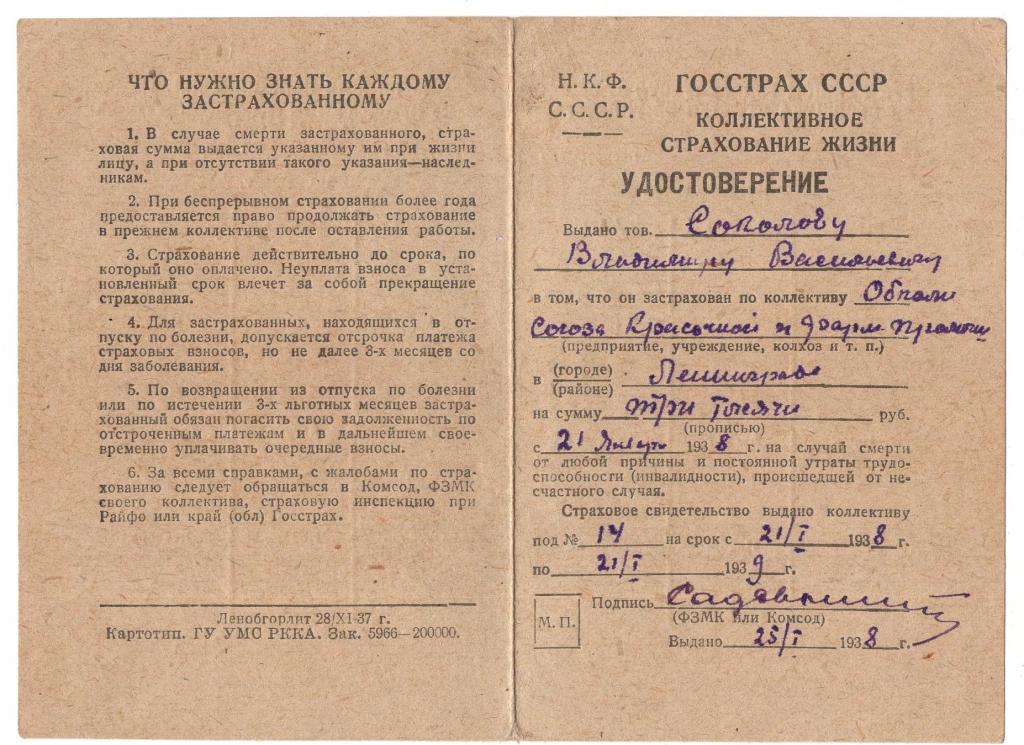 ЧТО НУЖНО ЗНАТЬ КАЖДОМУ
ЗАСТРАХОВАННОМУ
1. В случае смерти застрахованного, стра-
ховая сумма выдается указанному им при жизни
лицу, а при отсутствии такого указания—наслед-
никам.
2. При беспрерывном страховании более года
предоставляется право продолжать страхование
в прежнем коллективе после оставления работы.
3. Страхование действительно до срока, по
который оно оплачено. Неуплата взноса в уста-
новленный срок влечет за собой прекращение
страхования.
4. Для застрахованных, находящихся в от-
пуску по болезни, допускается отсрочка платежа
страховых взносов, но не далее 3-х месяцев со
дня заболевания.
5. По возвращении из отпуска по болезни
или по истечении 3-х льготных месяцев застра-
хованный обязан погасить свою задолженность по
отстроченным платежам и в дальнейшем свое-
временно уплачивать очередные взносы.
6. За всеми справками, с жалобами по стра-
хованию следует обращаться в Комсод, ФЗМК
своего коллектива, страховую инспекцию при
Райфо или край (обл) Госстрах.
Ленобгорлит 28/XI-37 г.
Картотип. ГУ УМС РККА. Зак. 5966—200000.
Н. К. Ф.
С. С. С. Р.
ГОССТРАХ СССР
КОЛЛЕКТИВНОЕ
СТРАХОВАНИЕ ЖИЗНИ
УДОСТОВЕРЕНИЕ
Выдано тов. Соколову
Владимиру Васильевичу
в том, что он застрахован по коллективу
Союза Красочной и
(предприятие, учреждение, колхоз и т. п.)
в (городе) Ленинграде
(районе)
на сумму Три тысячи руб.
(прописью)
с 21 Января 1938 г. на случай смерти
от любой причины и постоянной утраты трудо-
способности (инвалидности), происшедшей от не-
счастного случая.
Страховое свидетельство выдано коллективу
под № 14 на срок с 21/I 1938 г.
по 21/I 1939 г.
М. П.
Подпись
(ФЗМК или Комсод)
Выдано 25/I 1938 г.